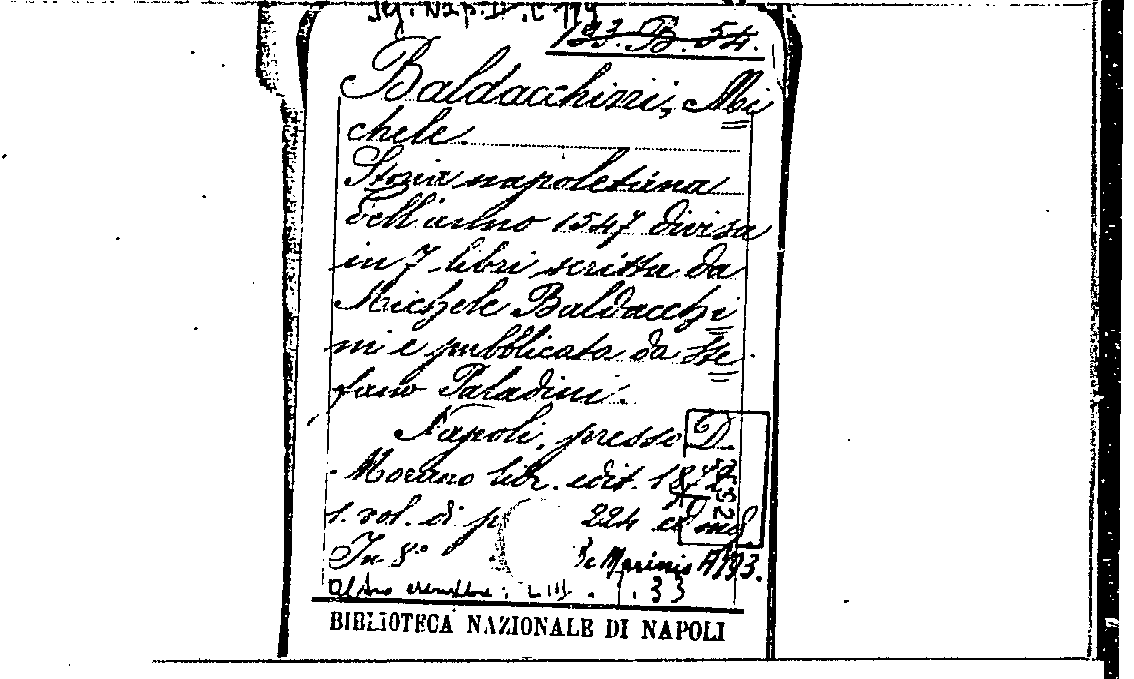 Sez. Nap. IV. C 174
193. B. 54.
Baldacchini, Mi
chele.
Storia napoletana
dell'anno 1547 divisa
in 7 libri scritta da
Michele Baldacchi
ni e pubblicata da Ste
fano Paladini.
Napoli, presso D.
Morano libr. edit. 1872
1. vol. di p 224 ed
In 8°
De Marinis A 193.
Altro esemplare: L.
BIBLIOTECA NAZIONALE DI NAPOLI